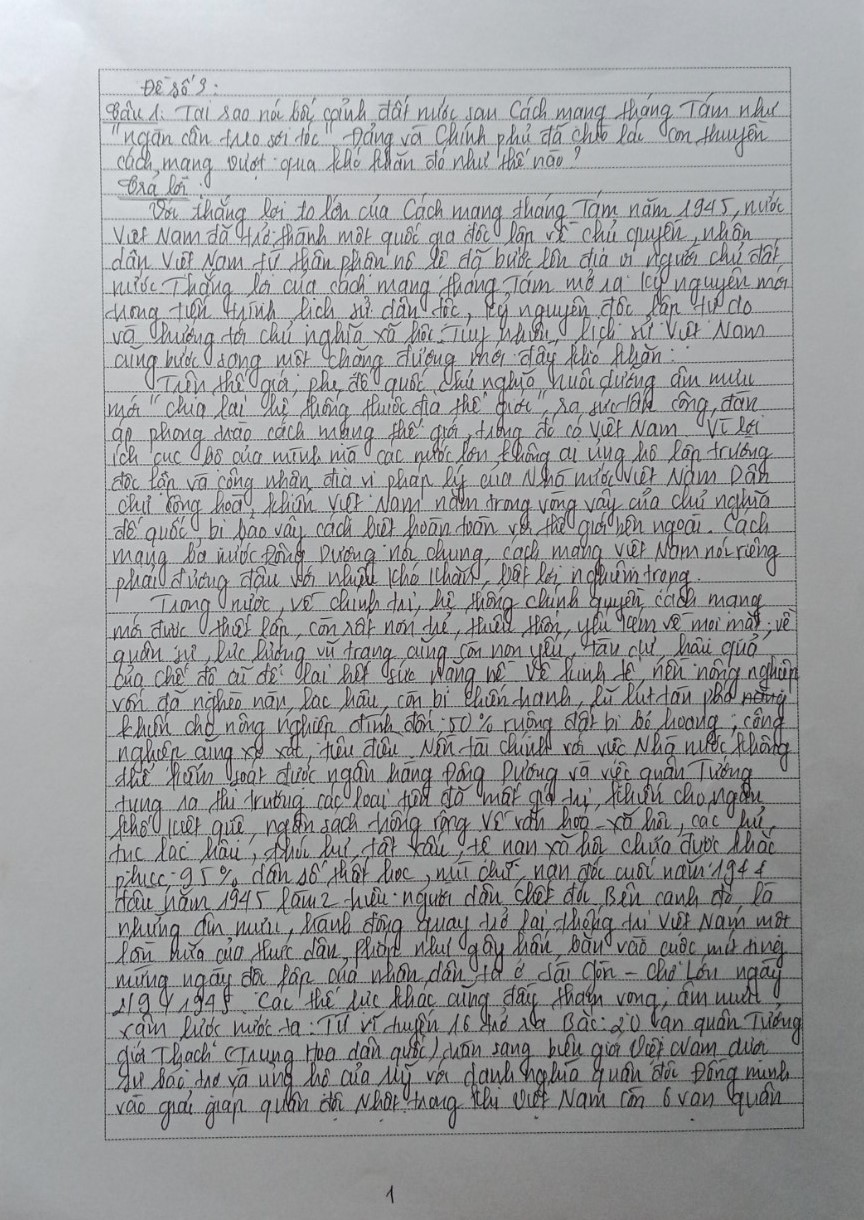 Đề số 9:
Câu 1: Tại sao nói bối cảnh đất nước sau Cách mạng tháng Tám như
"ngàn cân treo sợi tóc", Đảng và Chính phủ đã chèo lái con thuyền
cách mạng vượt qua khó khăn đó như thế nào?
Trả lời:
Với thắng lợi to lớn của Cách mạng tháng Tám năm 1945, nước
Việt Nam đã trở thành một quốc gia độc lập về chủ quyền, nhân
dân Việt Nam từ thân phận nô lệ đã bước lên địa vị người chủ đất
nước. Thắng lợi của cách mạng tháng Tám mở ra kỷ nguyên mới
trong tiến trình lịch sử dân tộc, kỷ nguyên độc lập tự do
và hướng tới chủ nghĩa xã hội. Tuy nhiên, lịch sử Việt Nam
cũng bước sang một chặng đường mới đầy khó khăn:
Trên thế giới, phe đế quốc chủ nghĩa nuôi dưỡng âm mưu
mới "chia lại hệ thống thuộc địa thế giới", ra sức tấn công, đàn
áp phong trào cách mạng thế giới, trong đó có Việt Nam. Vì lợi
ích cục bộ của mình mà các nước lớn, không ai ủng hộ lập trường
độc lập và công nhận địa vị pháp lý của Nhà nước Việt Nam Dân
chủ Cộng hoà, khiến Việt Nam nằm trong vòng vây của chủ nghĩa
đế quốc bị bao vây cách biệt hoàn toàn với thế giới bên ngoài. Cách
mạng ba nước Đông Dương nói chung, cách mạng Việt Nam nói riêng
phải đương đầu với nhiều khó khăn, bất lợi nghiêm trọng.
Trong nước, về chính trị, hệ thống chính quyền cách mạng
mới được thiết lập, còn rất non trẻ, thiếu thốn, yếu kém về mọi mặt; về
quân sự, lực lượng vũ trang cũng còn non yếu, tàn cư, hậu quả
của chế độ cũ để lại hết sức nặng nề. Về kinh tế, nền nông nghiệp
vốn đã nghèo nàn, lạc hậu, còn bị chiến tranh, lũ lụt tàn phá
khiến cho nông nghiệp đình đốn: 50% ruộng đất bị bỏ hoang; công
nghiệp cũng xơ xác, tiêu điều. Nền tài chính với việc Nhà nước không
thể kiểm soát được ngân hàng Đông Dương và việc quân Tưởng
tung ra thị trường các loại tiền đã mất giá trị, khiến cho ngân
khố kiệt quệ, ngân sách trống rỗng. Về văn hoá - xã hội, các hủ
tục lạc hậu, thói hư, tật xấu, tệ nạn xã hội chưa được khắc
phục: 95% dân số thất học, mù chữ, nạn đói cuối năm 1944
đầu năm 1945 làm 2 triệu người dân chết đói. Bên cạnh đó, là
những âm mưu, hành động quay trở lại thống trị Việt Nam một
lần nữa của thực dân Pháp như gây hấn, bắn vào cuộc mít ting
mừng ngày độc lập của nhân dân ta ở Sài Gòn - Chợ Lớn ngày
2/9/1945. Các thế lực khác cũng đầy tham vọng, âm mưu
xâm lược nước ta: Từ vĩ tuyến 16 trở ra Bắc: 20 vạn quân Tưởng
Giới Thạch (Trung Hoa dân quốc) tràn sang biên giới Việt Nam dưới
sự bảo trợ và ủng hộ của Mỹ với danh nghĩa quân đội Đồng minh
vào giải giáp quân đội Nhật trong khi Việt Nam còn 6 vạn quân
1